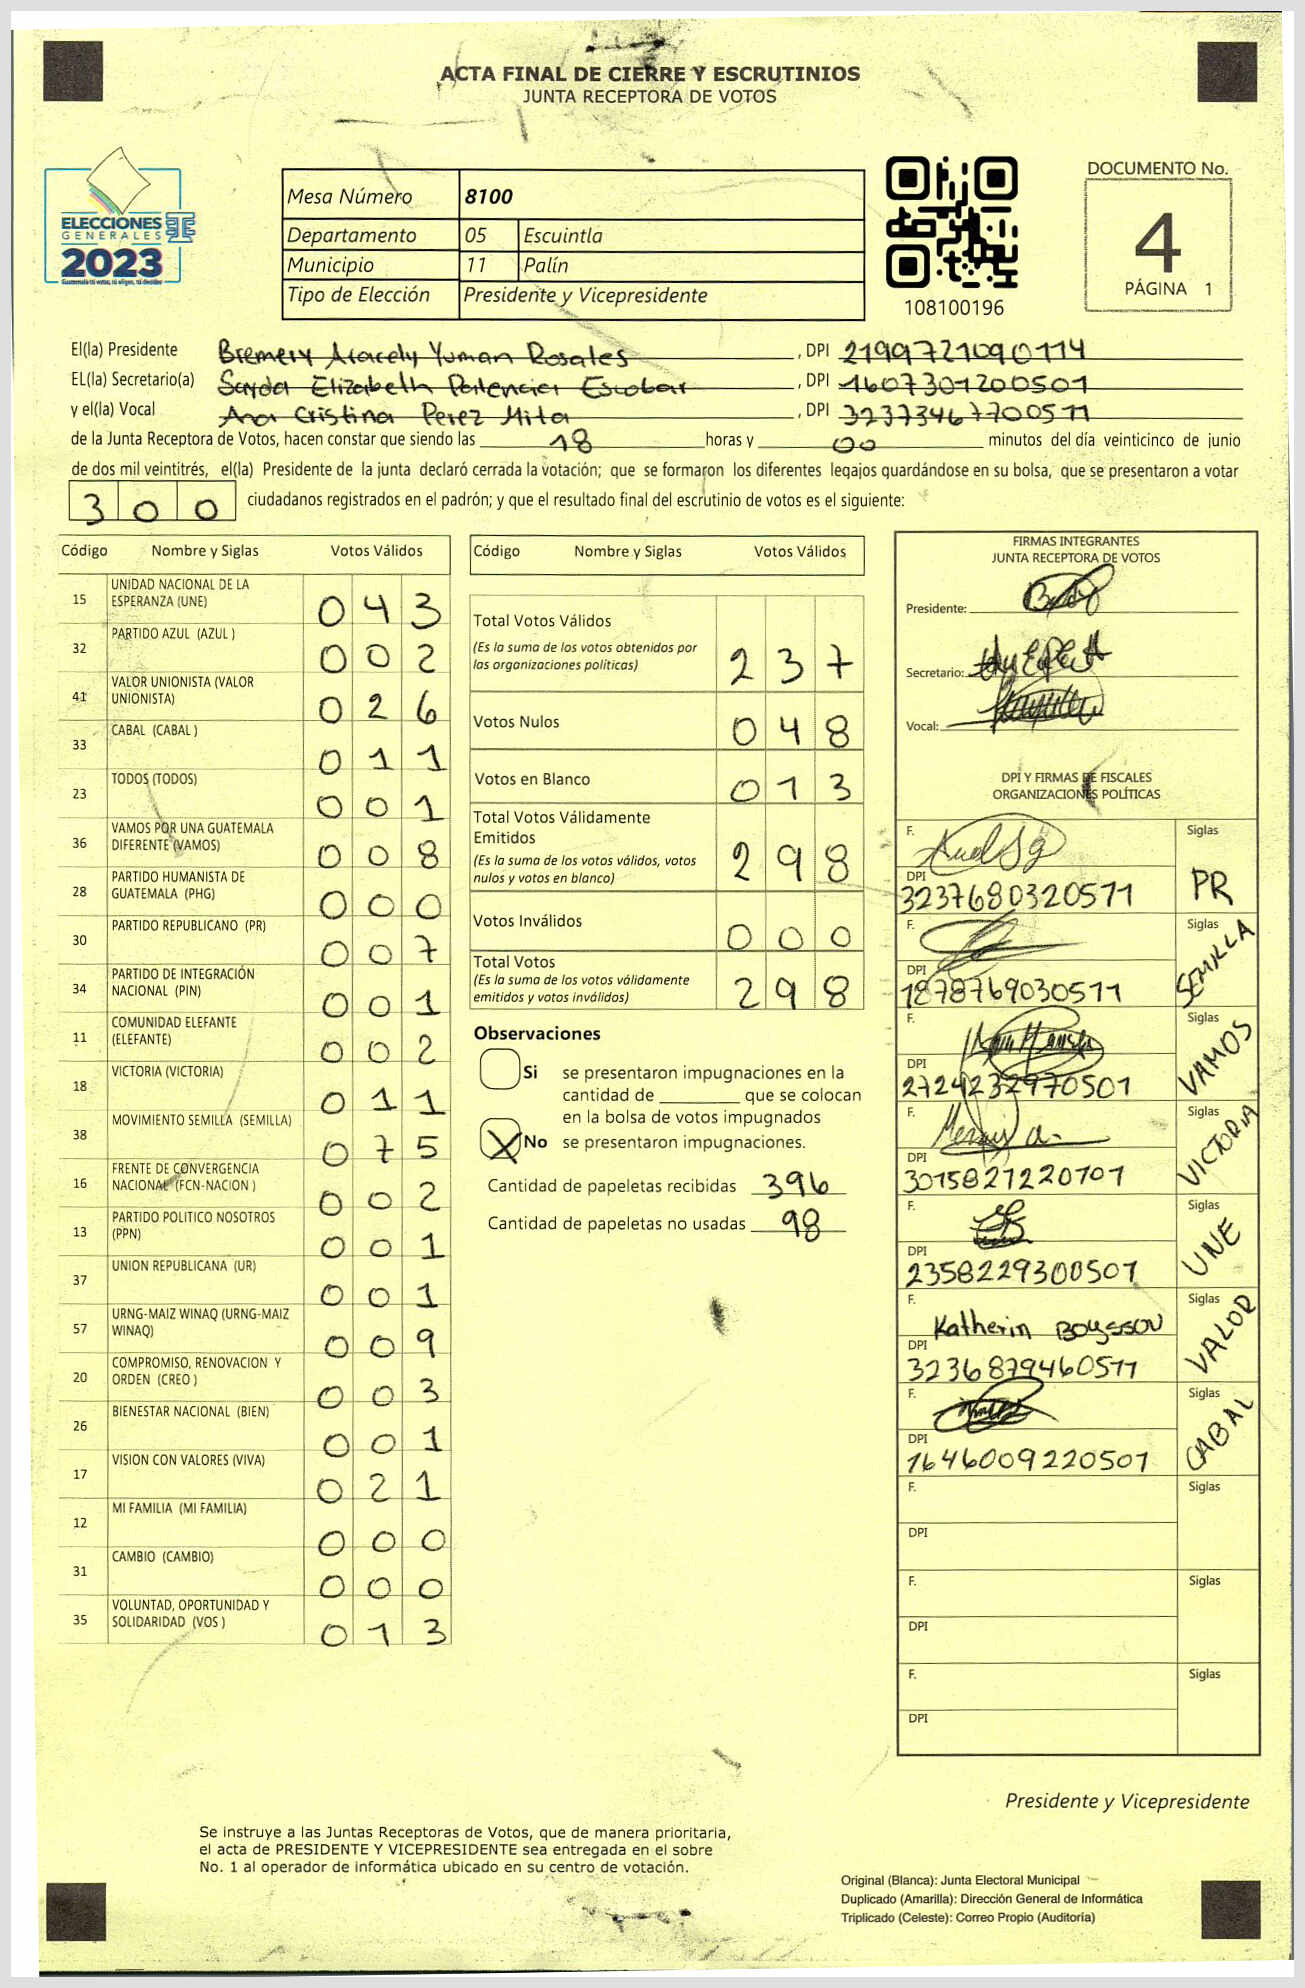 ACTA FINAL DE CIERRE Y ESCRUTINIOS
JUNTA RECEPTORA DE VOTOS
ELECCIONES
GENERALES
2023
Mesa Número 8100
Departamento 05 Escuintla
Municipio 11 Palín
Tipo de Elección Presidente y Vicepresidente
108100196
DOCUMENTO No.
4
PÁGINA 1
El(la) Presidente Bremery Aracely Yuman Rosales, DPI 2199721090114
EL(la) Secretario(a) Sayda Elizabeth Palencia Escobar, DPI 1607301200501
y el(la) Vocal Ana Cristina Perez Mita, DPI 32373467700511
de la Junta Receptora de Votos, hacen constar que siendo las 18 horas y 00 minutos del día veinticinco de junio
de dos mil veintitrés, el(la) Presidente de la junta declaró cerrada la votación; que se formaron los diferentes legajos guardándose en su bolsa, que se presentaron a votar
300 ciudadanos registrados en el padrón; y que el resultado final del escrutinio de votos es el siguiente:
Código Nombre y Siglas Votos Válidos
15 UNIDAD NACIONAL DE LA ESPERANZA (UNE) 043
32 PARTIDO AZUL (AZUL ) 002
41 VALOR UNIONISTA (VALOR UNIONISTA) 026
33 CABAL (CABAL ) 011
23 TODOS (TODOS) 001
36 VAMOS POR UNA GUATEMALA DIFERENTE (VAMOS) 008
28 PARTIDO HUMANISTA DE GUATEMALA (PHG) 000
30 PARTIDO REPUBLICANO (PR) 007
34 PARTIDO DE INTEGRACIÓN NACIONAL (PIN) 001
11 COMUNIDAD ELEFANTE (ELEFANTE) 002
18 VICTORIA (VICTORIA) 011
38 MOVIMIENTO SEMILLA (SEMILLA) 075
16 FRENTE DE CONVERGENCIA NACIONAL (FCN-NACION ) 002
13 PARTIDO POLITICO NOSOTROS (PPN) 001
37 UNION REPUBLICANA (UR) 001
57 URNG-MAIZ WINAQ (URNG-MAIZ WINAQ) 009
20 COMPROMISO, RENOVACION Y ORDEN (CREO ) 003
26 BIENESTAR NACIONAL (BIEN) 001
17 VISION CON VALORES (VIVA) 021
12 MI FAMILIA (MI FAMILIA) 000
31 CAMBIO (CAMBIO) 000
35 VOLUNTAD, OPORTUNIDAD Y SOLIDARIDAD (VOS ) 013
Código Nombre y Siglas Votos Válidos
Total Votos Válidos 237
(Es la suma de los votos obtenidos por
las organizaciones políticas)
Votos Nulos 048
Votos en Blanco 013
Total Votos Válidamente
Emitidos 298
(Es la suma de los votos válidos, votos
nulos y votos en blanco)
Votos Inválidos 000
Total Votos 298
(Es la suma de los votos válidamente
emitidos y votos inválidos)
Observaciones
Si se presentaron impugnaciones en la
cantidad de ________ que se colocan
en la bolsa de votos impugnados
X No se presentaron impugnaciones.
Cantidad de papeletas recibidas 396
Cantidad de papeletas no usadas 98
FIRMAS INTEGRANTES
JUNTA RECEPTORA DE VOTOS
Presidente:
Secretario:
Vocal:
DPI Y FIRMAS DE FISCALES
ORGANIZACIONES POLÍTICAS
F. Siglas PR
DPI 3237680320511
F. Siglas SEMILLA
DPI 1878769030511
F. Siglas VAMOS
DPI 2724232970501
F. Siglas VICTORIA
DPI 3015821220701
F. Siglas UNE
DPI 2358229300501
F. Katherin Siglas VALOR
DPI 3236879460511
F. Siglas CABAL
DPI 1646009220501
F. Siglas
DPI
F. Siglas
DPI
F. Siglas
DPI
Presidente y Vicepresidente
Se instruye a las Juntas Receptoras de Votos, que de manera prioritaria,
el acta de PRESIDENTE Y VICEPRESIDENTE sea entregada en el sobre
No. 1 al operador de informática ubicado en su centro de votación.
Original (Blanca): Junta Electoral Municipal
Duplicado (Amarilla): Dirección General de Informática
Triplicado (Celeste): Correo Propio (Auditoría)